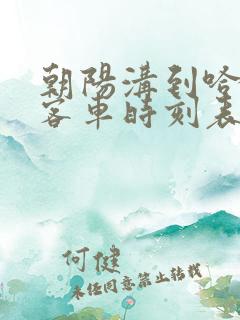 朝陽溝到哈
客車時刻表
何健
未经同意禁止转载